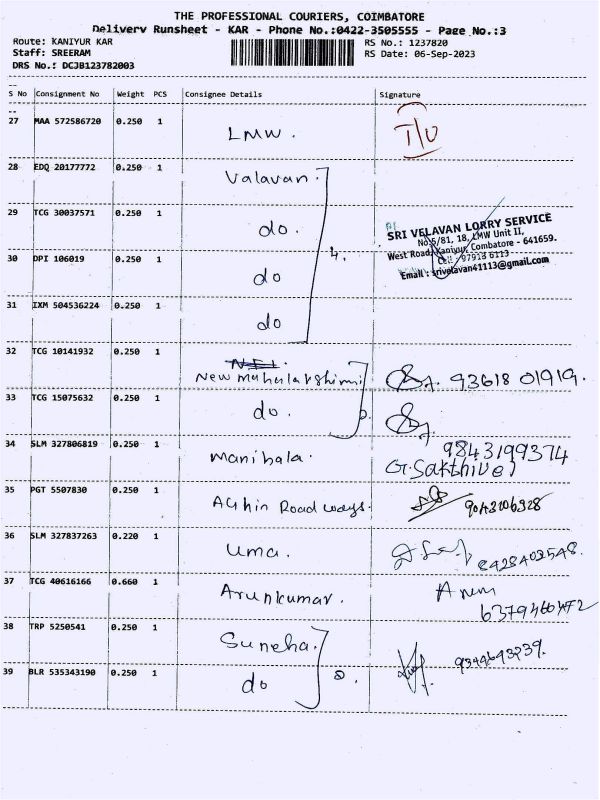 THE PROFESSIONAL COURIERS, COIMBATORE
Delivery Runsheet - KAR - Phone No.:0422-3505555 - Page No.:3
Route: KANIYUR KAR
RS No.: 1237820
Staff: SREERAM
RS Date: 06-Sep-2023
DRS No.: DCJB123782003
S No Consignment No Weight PCS Consignee Details Signature
27 MAA 572586720 0.250 1 LMW.
28 EDQ 20177772 0.250 1 Valavan.
29 TCG 30037571 0.250 1 do.
SRI VELAVAN LORRY SERVICE
No.5/81, 18, LMW Unit II,
West Road, Kaniyur, Combatore - 641659.
Cell - 97913 6113
Email : srivelavan41113@gmail.com
4.
30 DPI 106019 0.250 1 do
31 IXM 504536224 0.250 1 do
32 TCG 10141932 0.250 1 New Mahalakshimi 93618 01919.
33 TCG 15075632 0.250 1 do.
34 SLM 327806819 0.250 1 Manibala. 9843199374
G.Sakthivel
35 PGT 5507830 0.250 1 Roadways.
36 SLM 327837263 0.220 1 Uma. 8428402548.
37 TCG 40616166 0.660 1 Arunkumar.
38 TRP 5250541 0.250 1 Suneha. 9344643239.
39 BLR 535343190 0.250 1 do